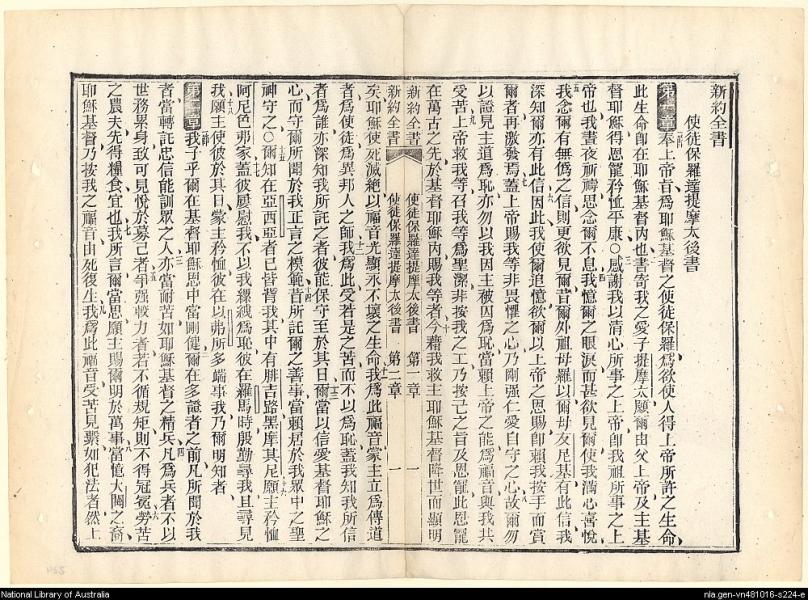 新約全書
使徒保羅達提摩太後書
第一章奉上帝旨爲耶穌基督之使徒保羅爲欲使人得上帝所許之生命
此生命卽在耶穌基督內也書寄我之愛子提摩太願爾由父上帝及主基
督耶穌得恩寵矜恤平康○感謝我以清心所事之上帝卽我祖所事之上
帝也我晝夜祈禱思念爾不息我憶爾之眼淚而甚欲見爾使我滿心喜悅
我念爾有無僞之信則更欲見爾昔爾外祖母羅以爾母友尼基有此信我
深知爾亦有此信因此我使爾追憶欲爾以上帝之恩賜卽賴我按手而賞
爾者再激發焉蓋上帝賜我等非畏懼之心乃剛强仁愛自守之心故爾勿
以證見主道爲恥亦勿以我因主被囚爲恥當賴上帝之能爲福音與我共
受苦上帝救我等召我等爲聖潔非按我之工乃按己之旨及恩寵此恩寵
在萬古之先於基督耶穌內賜我等者今藉我救主耶穌基督降世而顯明
新約全書 使徒保羅達提摩太後書 第一章 一
新約全書 使徒保羅達提摩太後書 第二章 一
矣耶穌使死滅絕以福音光顯永不壞之生命我爲此福音蒙主立爲傳道
者爲使徒爲異邦人之師我爲此受若是之苦而不以爲恥蓋我知我所信
者爲誰亦深知我所託之者彼能保守至於其日爾當以信愛基督耶穌之
心而守爾所聞於我正言之模範昔所託爾之善事當賴居於我眾中之聖
神守之○爾知在亞西亞者已皆背我其中有腓吉路黑摩其尼願主矜恤
阿尼色弗家蓋彼屢慰我不以我縲絏爲恥彼在羅馬時殷勤尋我且尋見
我願主使彼於其日蒙主矜恤彼在以弗所多端事我乃爾明知者
第二章我子乎爾在基督耶穌恩中當剛健爾在多證者之前凡所聞於我
者當轉託忠信能訓眾之人亦當耐苦如耶穌基督之精兵凡爲兵者不以
世務累身致可見悅於募己者爭强較力者若不循規矩則不得冠冕勞苦
之農夫先得糧食宜也我所言爾當思願主賜爾明於萬事當憶大闢之裔
耶穌基督乃按我之福音由死復生我爲此福音受苦見縶如犯法者然上
National Library of Australia
nla.gen-vn481016-s224-e